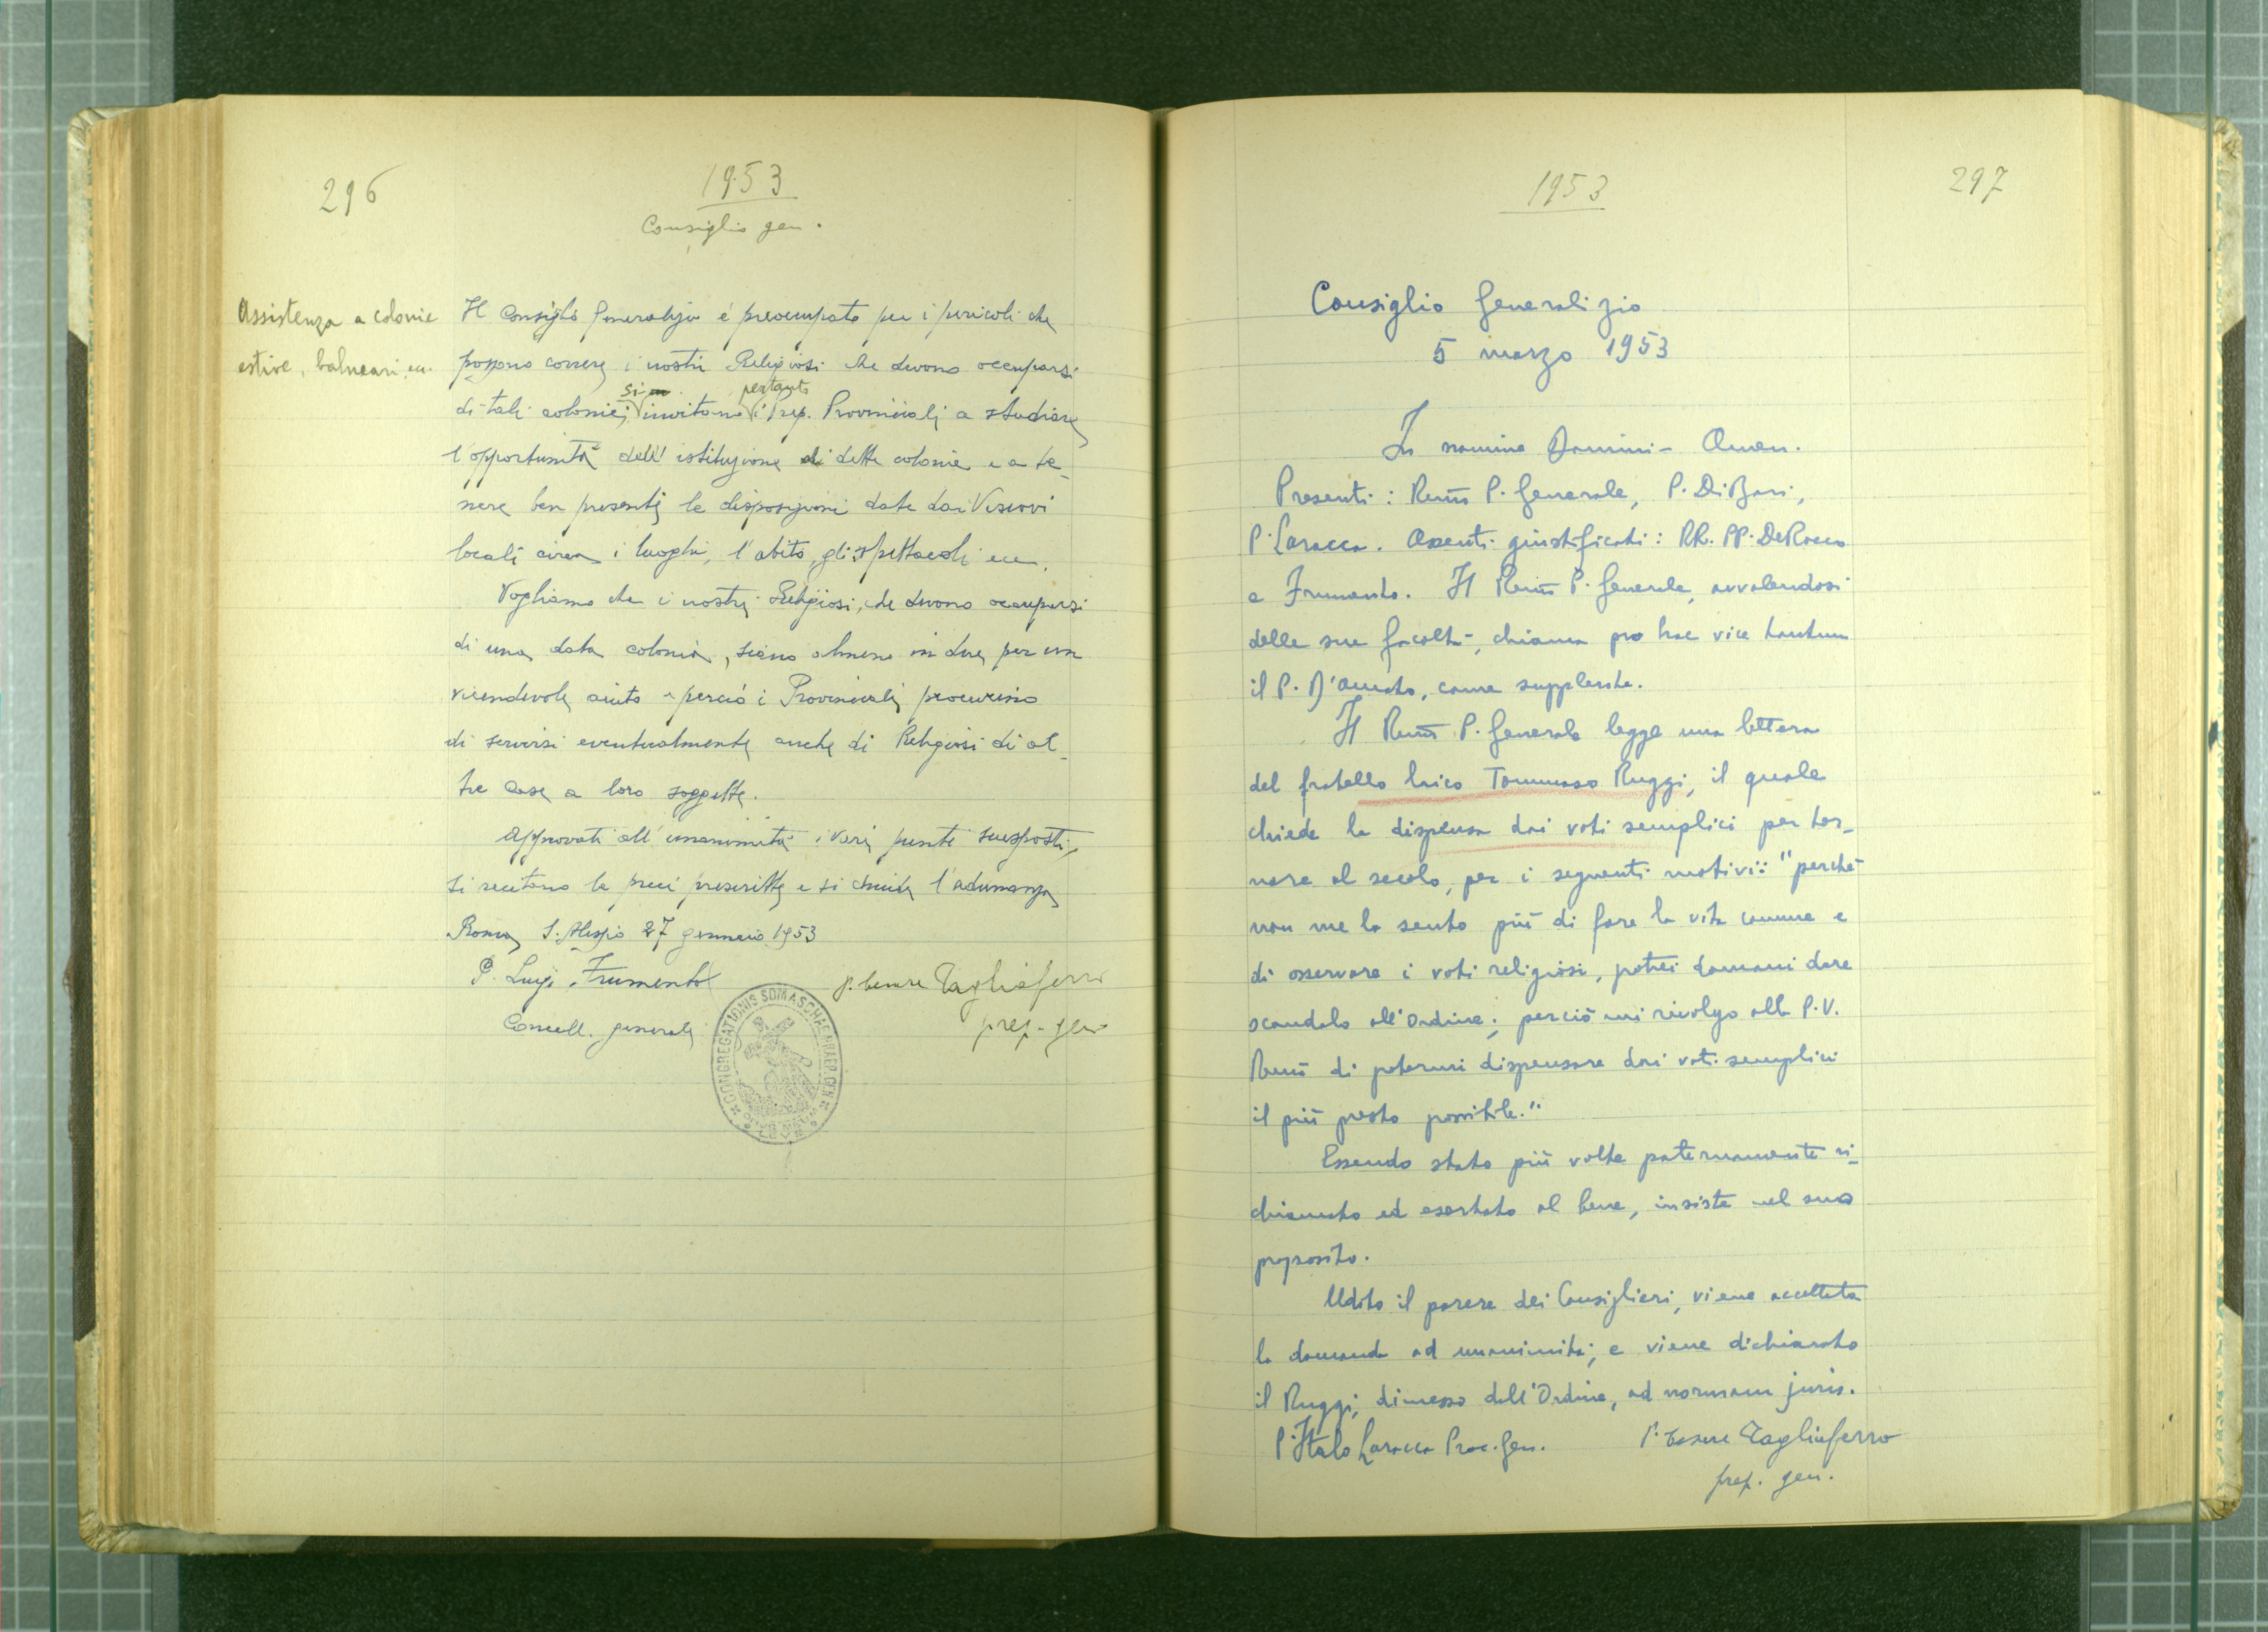 296
1953
Consiglio gen.
Assistenza a colonie
estive, balneari, ecc.
Il Consiglio Generalizio è preoccupato per i pericoli che
possono correre i nostri Religiosi che devono occuparsi
si pertanto
di tali colonie; invitano i Prep. Provinciali a studiare
l'opportunità dell'istituzione di dette colonie e a te-
nere ben presenti le disposizioni date dai Vescovi
locali circa i luoghi, l'abito, gli spettacoli ecc.
Vogliamo che i nostri Religiosi, che devono occuparsi
di una data colonia, siano almeno in due per un
vicendevole aiuto e perciò i Provinciali procurino
di servirsi eventualmente anche di Religiosi di al-
tre case a loro soggette.
Approvati all'unanimità i vari punti suesposti,
si recitano le preci prescritte e si chiude l'adunanza
Roma, S. Alessio 27 gennaio 1953
P. Luigi Frumento
Cancell. generale
P. Cesare Tagliaferro
prep. gen.
CONGREGATIONIS SOMASCHAE PRAEP. GEN.
1953
297
Consiglio Generalizio
5 marzo 1953
In nomine Domini - Amen.
Presenti: Rev.mo P. Generale, P. Di Bari,
P. Laracca. Assenti giustificati: RR. PP. De Rocco
e Frumento. Il Rev.mo P. Generale, avvalendosi
delle sue facoltà, chiama pro hac vice tantum
il P. D'Amato, come supplente.
Il Rev.mo P. Generale legge una lettera
del fratello laico Tommaso Ruggi, il quale
chiede la dispensa dai voti semplici per tor-
nare al secolo, per i seguenti motivi: "perchè
non me la sento più di fare la vita comune e
di osservare i voti religiosi, potrei domani dare
scandalo all'Ordine; perciò mi rivolgo alla P.V.
Rev.ma di potermi dispensare dai voti semplici
il più presto possibile."
Essendo stato più volte paternamente ri-
chiamato ed esortato al bene, insiste nel suo
proposito.
Udito il parere dei Consiglieri, viene accettata
la domanda ad unanimità; e viene dichiarato
il Ruggi, dimesso dall'Ordine, ad normam juris.
P. Italo Laracca Proc. Gen.
P. Cesare Tagliaferro
prep. gen.